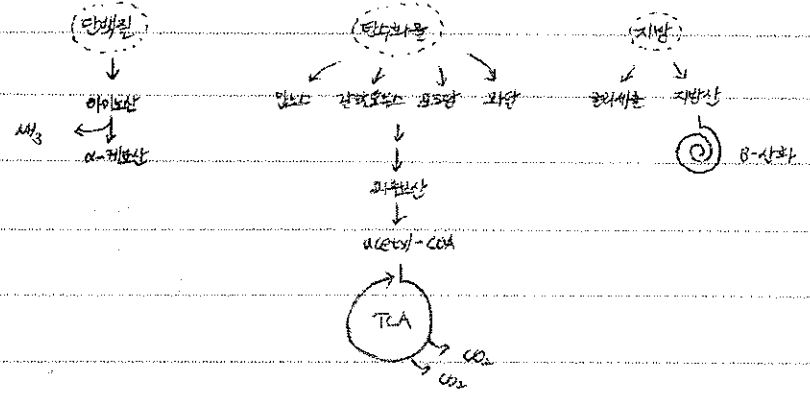 단백질 탄수화물 지방
아미노산 만노스 갈락토오스 포도당 과당 글리세롤 지방산
NH₃ α-케토산 β-산화
피루브산
acetyl-CoA
TCA
CO₂
CO₂